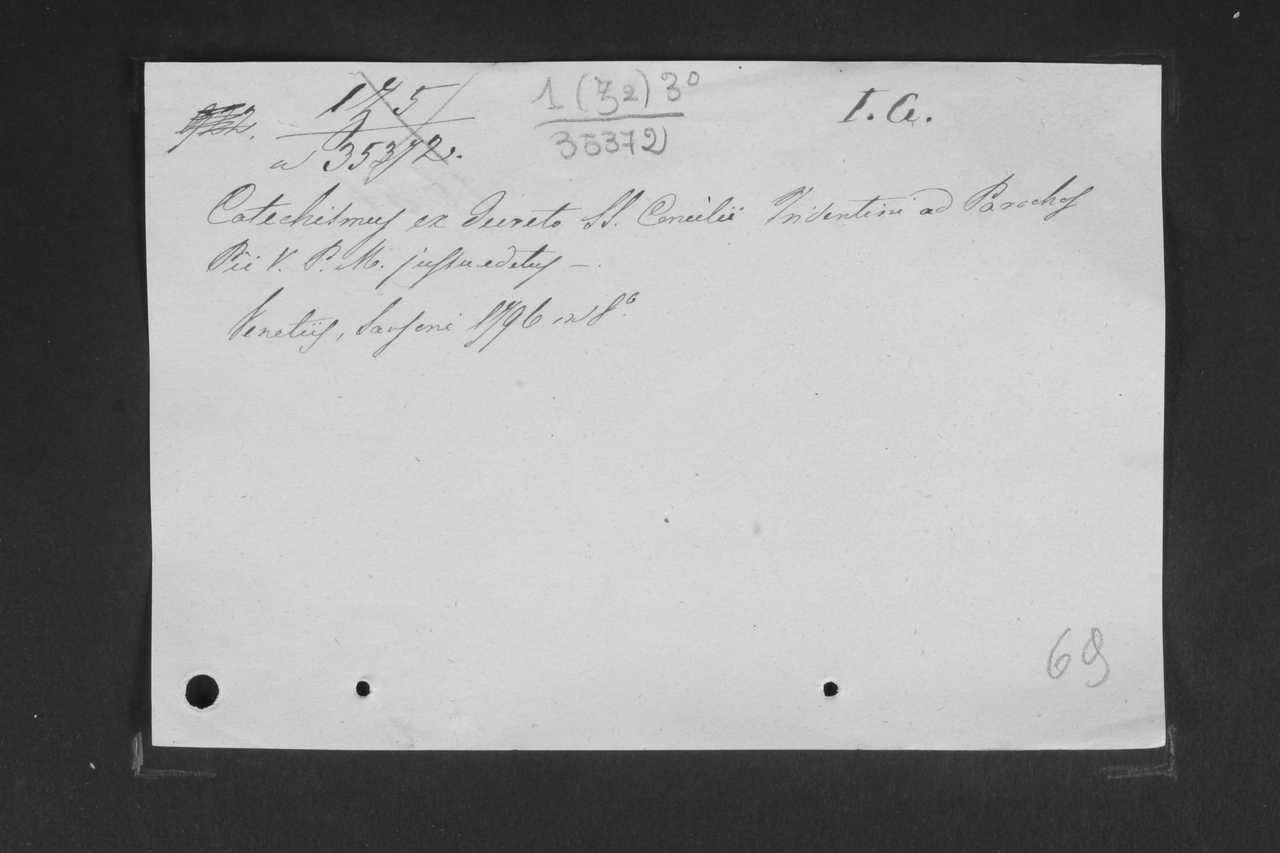 175 1 (Z2) 3º I. G.
a 35372. 35372
Catechismus ex Decreto SS. Concilii Tridentini ad Parochos
Pii V. P. M. jussu editus —.
Venetiis, Sansoni 1796 in 8º
69